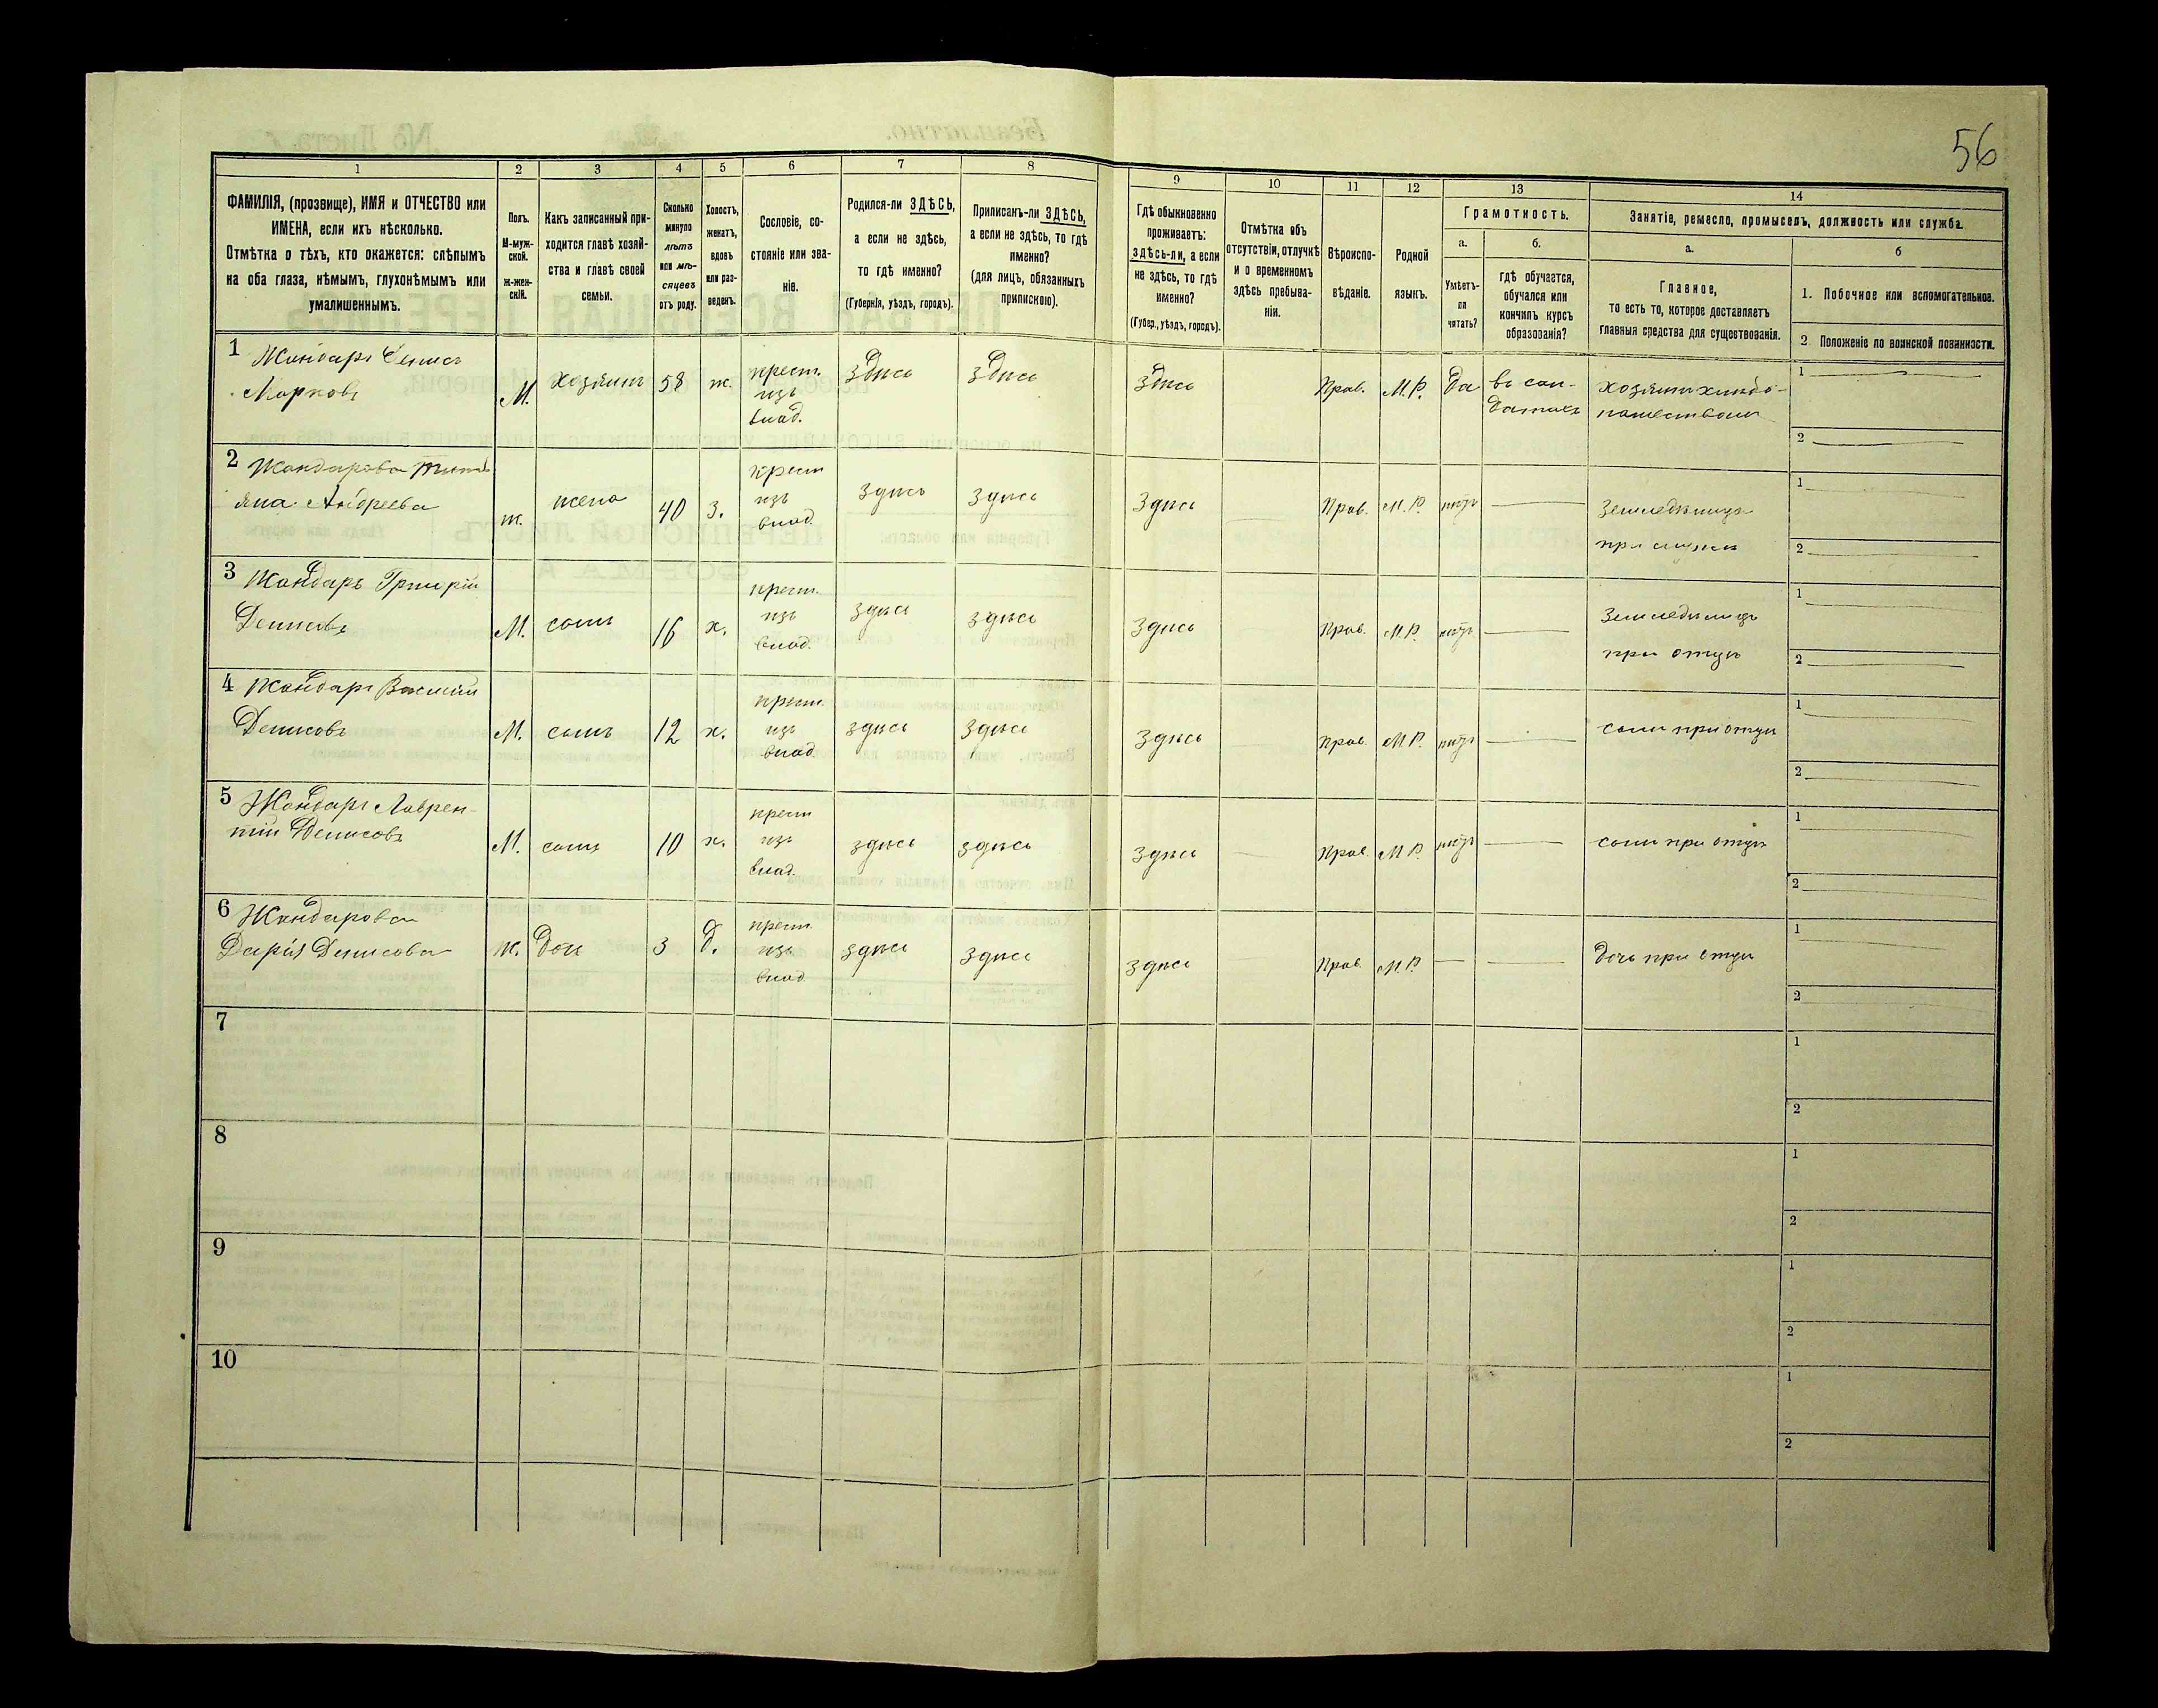 56
1
2
3
4
5
6
7
8
9
10
11
12
13
14
ФАМИЛІЯ, (прозвище), ИМЯ и ОТЧЕСТВО или
ИМЕНА, если ихъ нѣсколько.
Отмѣтка о тѣхъ, кто окажется: слѣпымъ
на оба глаза, нѣмымъ, глухонѣмымъ или
умалишеннымъ.
Полъ.
М-муж-
ской.
ж-жен-
скій.
Какъ записанный при-
ходится главѣ хозяй-
ства и главѣ своей
семьи.
Сколько
минуло
лѣтъ
или мѣ-
сяцевъ
отъ роду.
Холостъ,
женатъ,
вдовъ
или раз-
веденъ.
Сословіе, со-
стояніе или зва-
ніе.
Родился-ли ЗДѢСЬ,
а если не здѣсь,
то гдѣ именно?
(Губернія, уѣздъ, городъ).
Приписанъ-ли ЗДѢСЬ,
а если не здѣсь, то гдѣ
именно?
(для лицъ, обязанныхъ
припискою).
Гдѣ обыкновенно
проживаетъ:
здѣсь-ли, а если
не здѣсь, то гдѣ
именно?
(Губер., уѣздъ, городъ).
Отмѣтка объ
отсутствіи, отлучкѣ
и о временномъ
здѣсь пребыва-
ніи.
Вѣроиспо-
вѣданіе.
Родной
языкъ.
Грамотность.
а.
Умѣетъ-
ли
читать?
б.
гдѣ обучается,
обучался или
кончилъ курсъ
образованія?
Занятіе, ремесло, промыселъ, должность или служба.
а.
Главное,
то есть то, которое доставляетъ
главныя средства для существованія.
б
1. Побочное или вспомогательное.
2. Положеніе по воинской повинности.
1 Жандаръ Денисъ
Марковъ
М. хозяинъ 58 ж. крест. изъ влад. здѣсь здѣсь здѣсь Прав. М.Р. да въ сол-
датахъ
1
2
2 Жандарова
Андреева
ж. жена 40 з. крест изъ влад. здѣсь здѣсь здѣсь Прав. М.Р. нѣтъ
при мужѣ
1
2
3 Жандаръ Григорій
Денисовъ
М. сынъ 16 х. крест. изъ влад. здѣсь здѣсь здѣсь Прав. М.Р. нѣтъ
при отцѣ
1
2
4 Жандаръ Василій
Денисовъ
М. сынъ 12 х. крест. изъ влад. здѣсь здѣсь здѣсь Прав. М.Р. нѣтъ сынъ при отцѣ
1
2
5 Жандаръ Лаврен-
тій Денисовъ
М. сынъ 10 х. крест изъ влад. здѣсь здѣсь здѣсь Прав. М.Р. нѣтъ сынъ при отцѣ
1
2
6 Жандарова
Дарія Денисова
ж. доч 3 д. крест изъ влад здѣсь здѣсь здѣсь Прав. М.Р. дочь при отцѣ
1
2
7
1
2
8
1
2
9
1
2
10
1
2